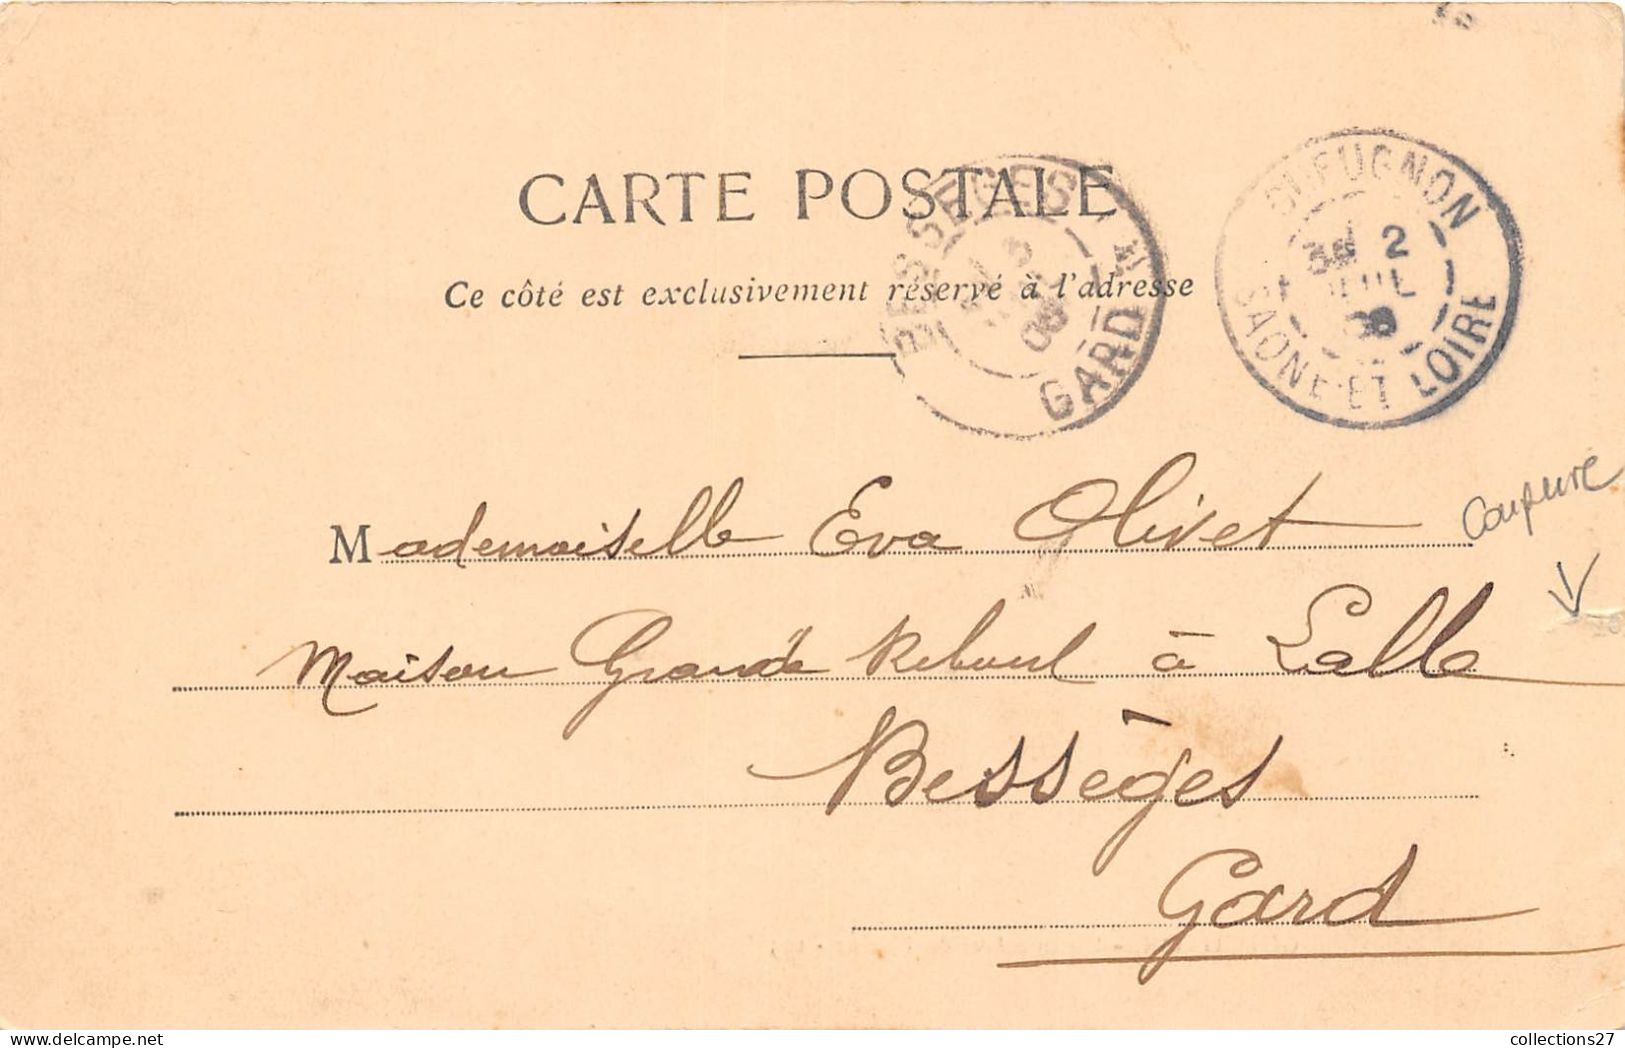 CARTE POSTALE
Ce côté est exclusivement réservé à l'adresse
BESSEGES
GARD
GUEUGNON
2
SAONE ET LOIRE
Coupure
Mademoiselle Eva Olivet
Maison Grande Reboul à Lalle
Bessèges
Gard
collections27